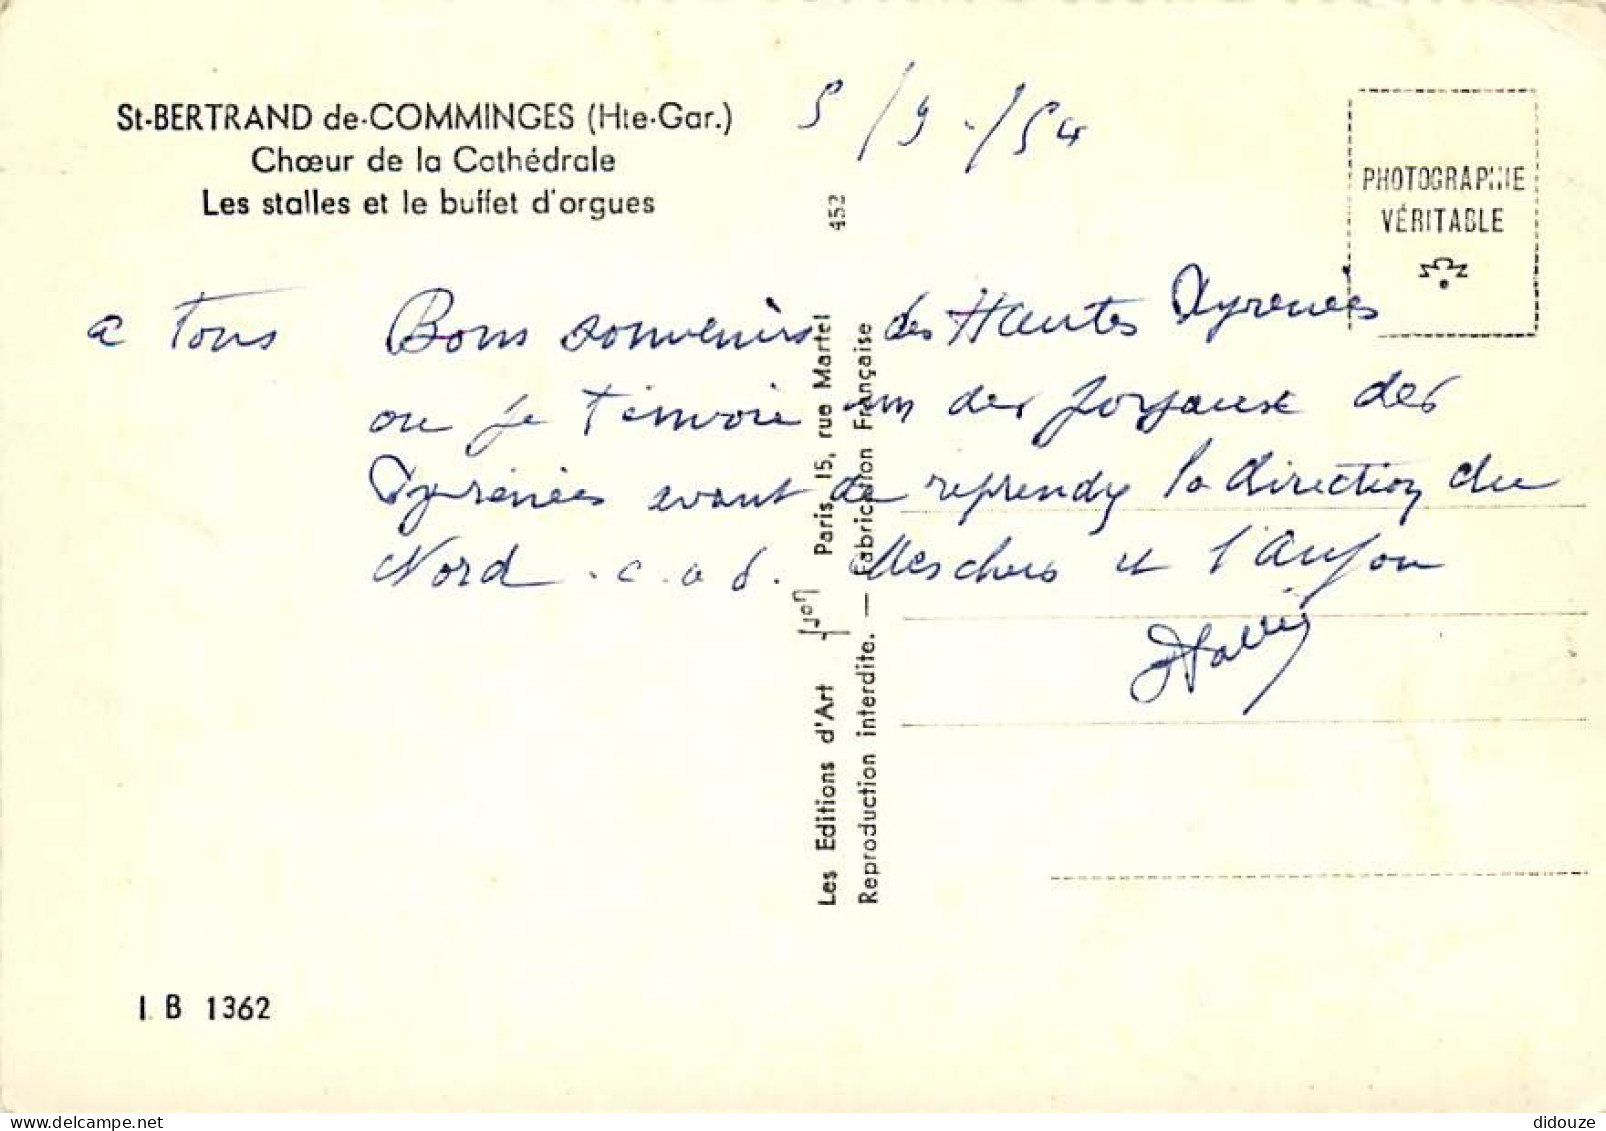 St-BERTRAND de-COMMINGES (Hte-Gar.)
Chœur de la Cathédrale
Les stalles et le buffet d'orgues
5/9-/54
PHOTOGRAPHIE
VÉRITABLE
a Tous Bons souvenirs des Hautes Pyrenées
ou je t'envoie un des joyaux des
Pyrénées avant de reprendre la direction du
Nord. c.a.d. Meschers et l'Anjou
452
Les Editions d'Art Yvon Paris, 15, rue Martel
Reproduction interdite. — Fabrication Française
I. B 1362
didouze